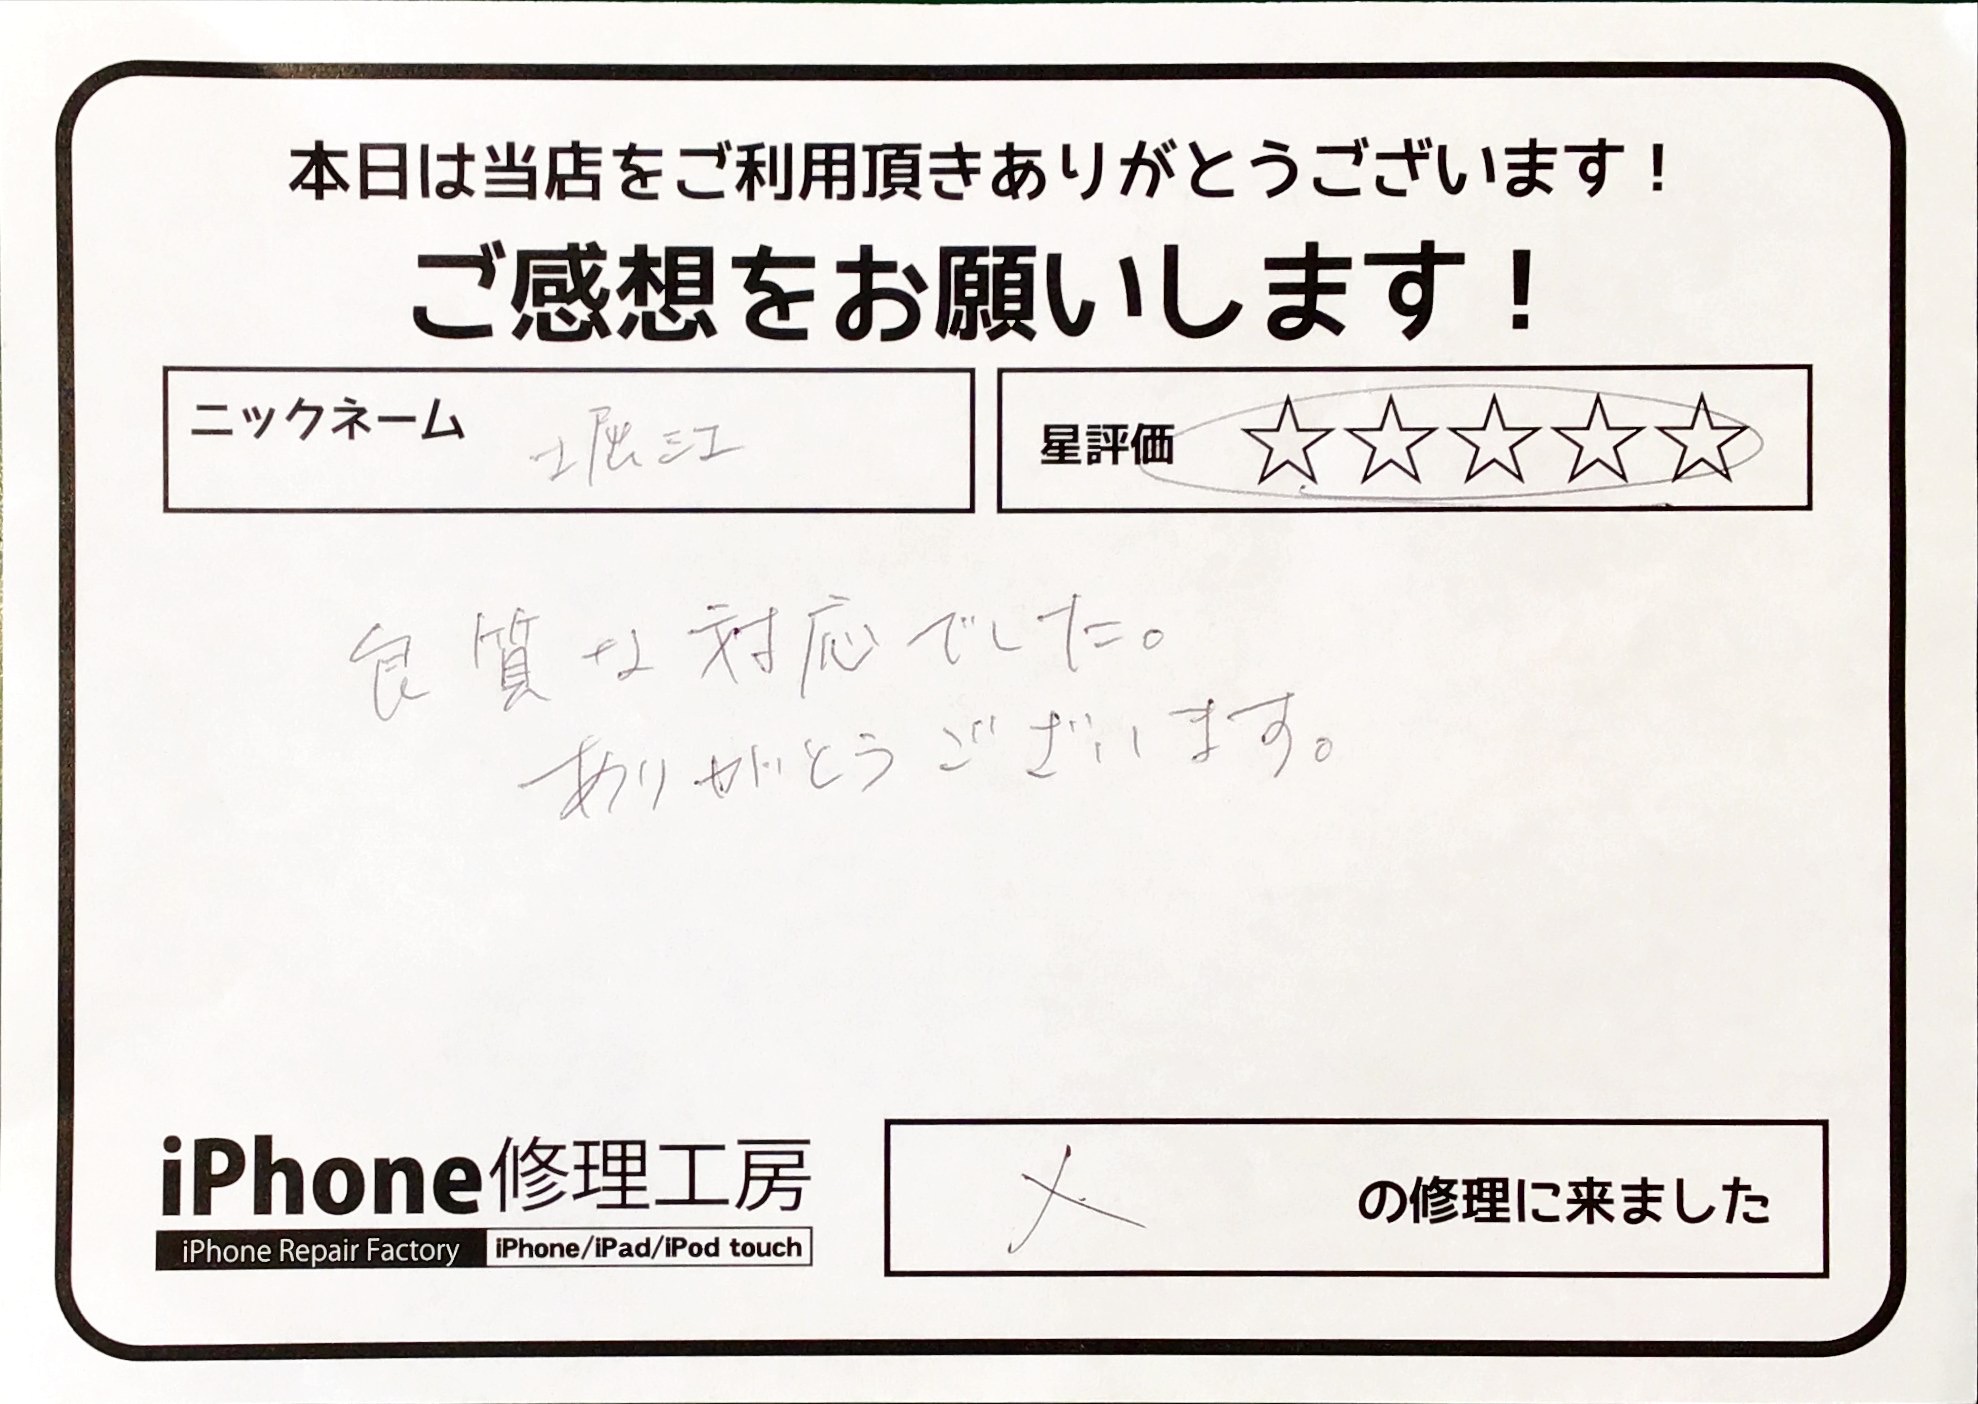 本日は当店をご利用頂きありがとうございます！
ご感想をお願いします！
ニックネーム 堀江
星評価 ☆☆☆☆☆
良質な対応でした。
ありがとうございます。
iPhone修理工房
iPhone Repair Factory iPhone/iPad/iPod touch
の修理に来ました